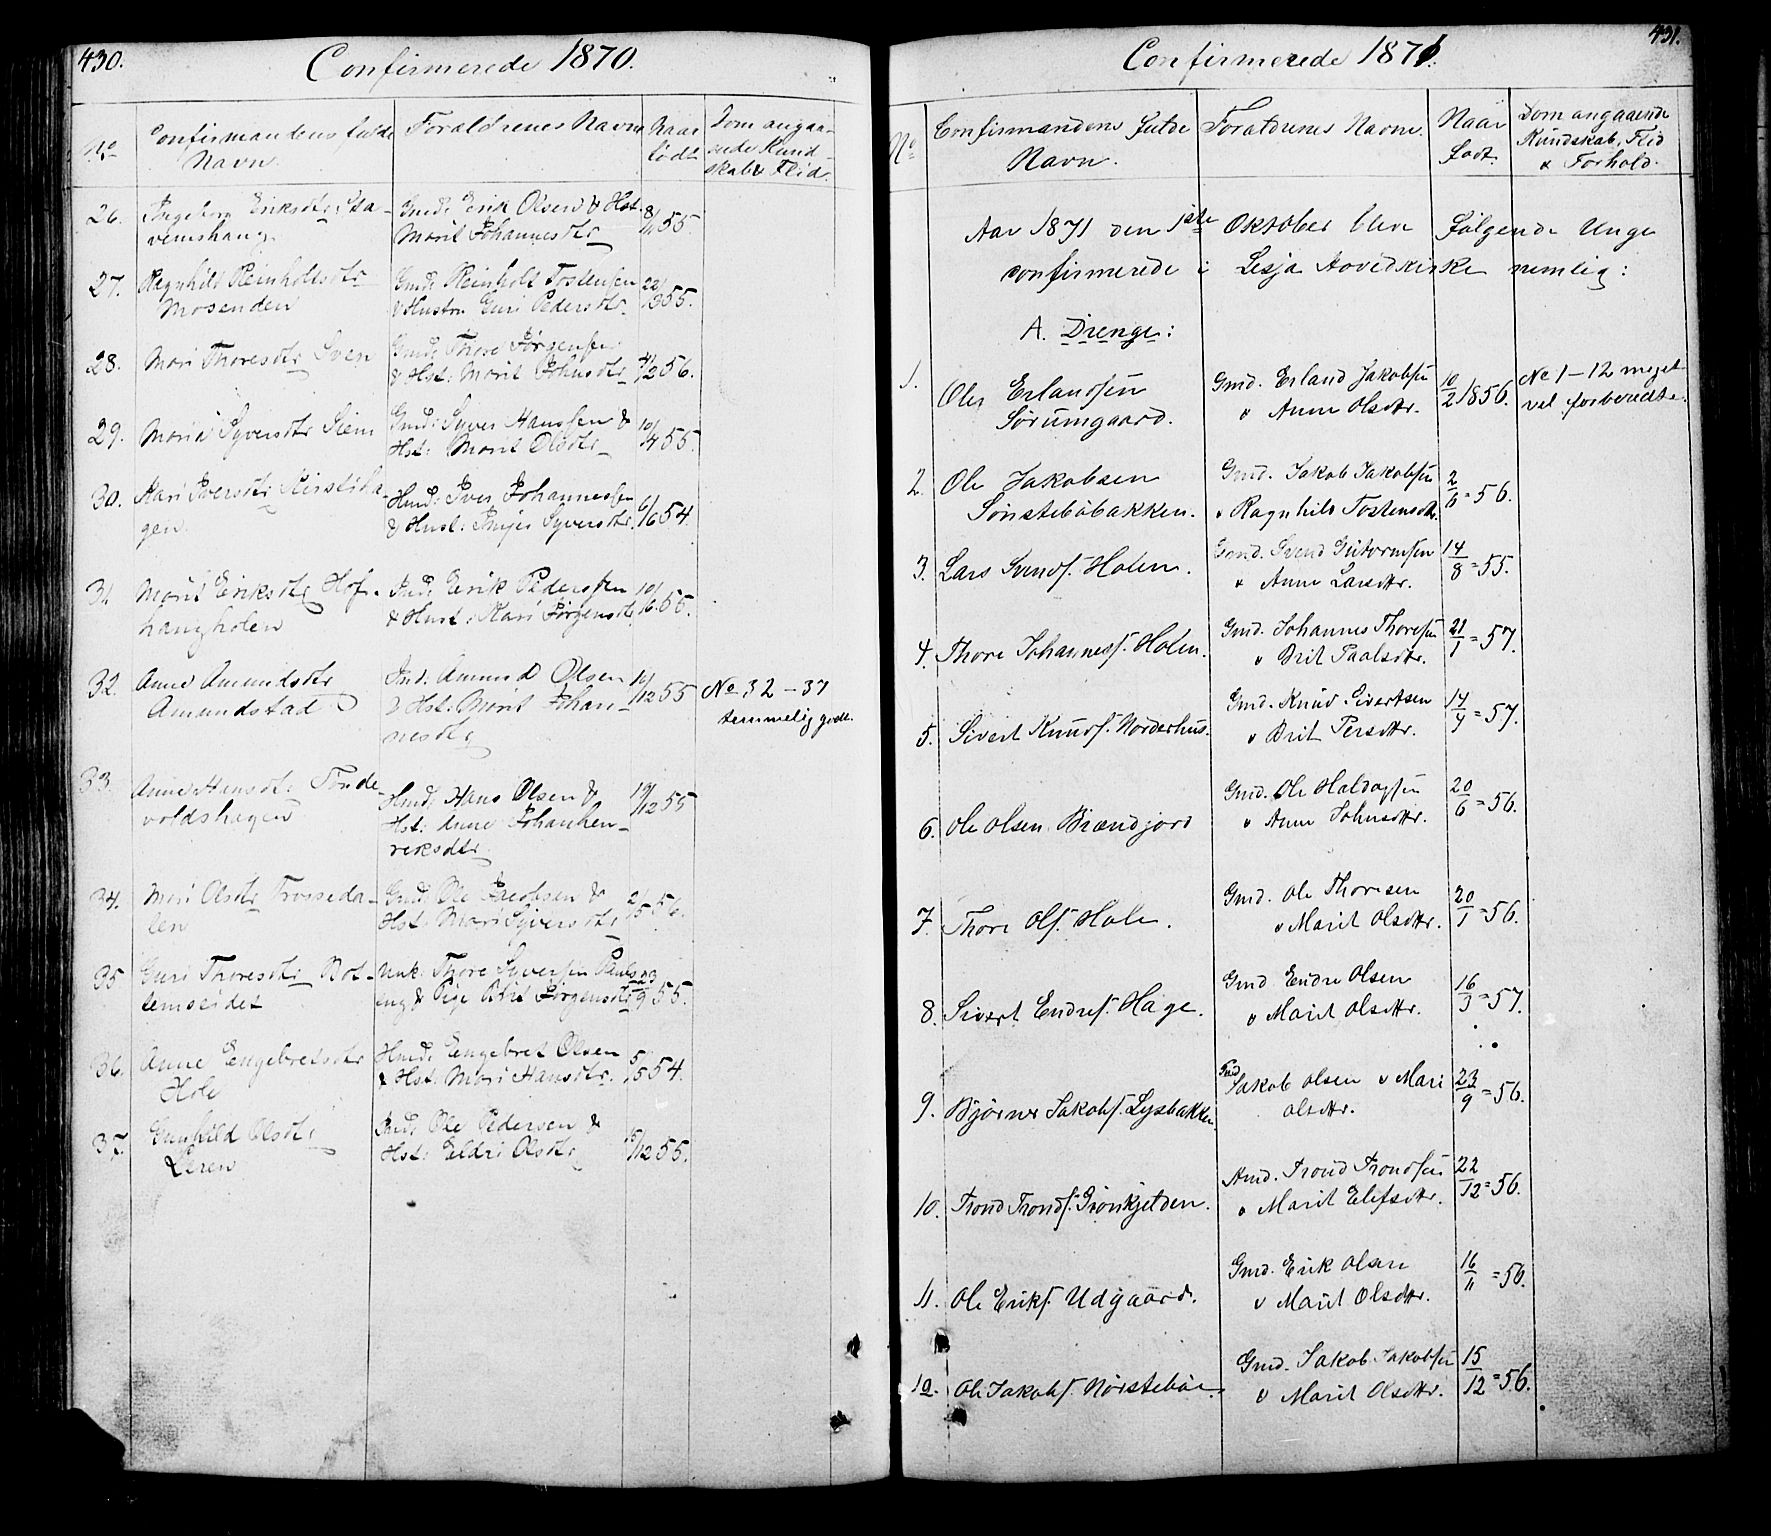 430.
Confirmerede 1870.
No
Confirmandens fulde
Navn
Forældrenes Navne
Naar
født
Dom angaa-
ende Kund-
skab & Flid.
26.
Ingeborg Eriksdtr
Gmd: Erik Olsen & Hst.
Marit Johannesdtr
8/11 55.
27.
Ragnhild Reinholdsdtr
Mosenden
Gmd: Reinholt Tostensen
& Hustru Guri Pedersdtr.
55.
28.
Mari Thoresdtr Sven
Gmd: Thore Jørgensen
& Hst: Marit Johnsdtr
56.
29.
Syversdtr
Gmd: Syver Hanssen &
Hst: Marit Olsdtr
10/4 55
30.
Kari Iversdtr
gen
Hmd: Iver Johannessen
& Hust: Syversdtr.
6/6 54.
31.
Marit Eriksdtr Hof-
haugholen
Ind: Erik Pederssen
& Hust: Kari Jørgensdtr
55.
32.
Anne Amundsdtr
Amundstad
Ind: Amund Olsen
& Hst: Marit Johan-
nesdtr
55
No 32 - 37
temmelig godt.
33.
Anne Hansdtr Tonde-
voldshagen
Hmd: Hans Olsen &
Hst: Anne Johanhen-
reksdtr
19/12 55
34.
Mari Olsdtr Trosseda-
len
Gmd: Ole Jacobsen &
Hst: Mari Syversdtr
2/5 56.
35
Guri Thoresdtr Bot-
temseidet
Unk: Thore Syversen
& Pige Jørgensdtr
55.
36.
Anne Engebretsdtr
Hole
Hmd: Engebret Olsen
& Hst: Mari Hansdtr.
5/5 54.
37.
Gunhild Olsdtr
Leren
Ind: Ole Pedersen &
Hst: Eldri Olsdtr
15/12 55.
431.
Confirmerede 1871.
No
Confirmandens fulde
Navn.
Forældrenes Navne.
Naar
født.
Dom angaaende
Kundskab, Flid
& Forhold.
Aar 1871 den 1ste Oktober blev følgende Unge
confirmerede i Lesja Hovedkirke nemlig:
A. Drenge:
1.
Ole Erlandsen
Sørumgaard.
Gmd. Erland Jakobsen
& Anne Olsdtr.
10/2 1856.
No 1 - 12 meget
vel forberedte.
2.
Ole Jakobsen
Sønstebøbakken.
Gmd. Jakob Jakobsen
& Ragnhild Tostensdtr.
2/11 = 56.
3.
Lars Svends. Holen.
Gmd. Svend Guttormsen
& Anne Larsdtr.
14/8 = 55.
4.
Thore Johanness. Holen.
Gmd. Johannes Thoresen
& Brit Paalsdtr.
21/1 = 57.
5.
Sivert Knuds. Norderhus.
Gmd. Knud Sivertsen
& Brit Persdtr.
14/4 = 57.
6.
Ole Olsen Brændjord
Gmd. Ole Haldogsen
& Anne Johnsdtr.
20/6 = 56.
7.
Thore Ols. Hole.
Gmd. Ole Thoresen
& Marit Olsdtr.
20/1 = 56.
8.
Sivert Endres. Hage.
Gmd Endre Olsen
& Marit Olsdtr.
16/3 = 57.
9.
Bjørner Jakobs. Lysbakken.
Gmd
Jakob Olsen & Mari
Olsdtr.
23/9 = 56.
10.
Trond Tronds. Grønkjelden.
Gmd. Trond Trondsen
& Marit Elefsdtr.
22/12 = 56.
11.
Ole Eriks. Udgaard.
Gmd. Erik Olsen
& Marit Olsdtr.
16/11 = 56.
12.
Ole Jakobs. Nørstebøe.
Gmd. Jakob Jakobsen
& Marit Olsdtr.
15/12 = 56.